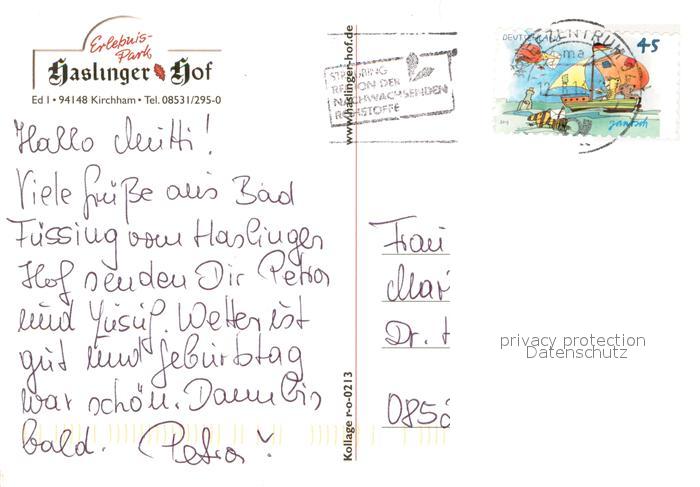 Erlebnis-
Park
Haslinger Hof
Ed 1 • 94148 Kirchham • Tel. 08531/295-0
Hallo Mutti!
Viele Grüße aus Bad
Füssing vom Haslinger
Hof senden Dir Petra
und Yusuf. Wetter ist
gut und Geburtstag
war schön. Dann bis
bald. Petra
www.haslinger-hof.de
Kollage r-o-0213
STRAUBING
REGION DER
NACHWACHSENDEN
ROHSTOFFE
DEUTSCHLAND
45
janosch
ZENTRUM
Frau
Mar
Dr. H
085
privacy protection
Datenschutz